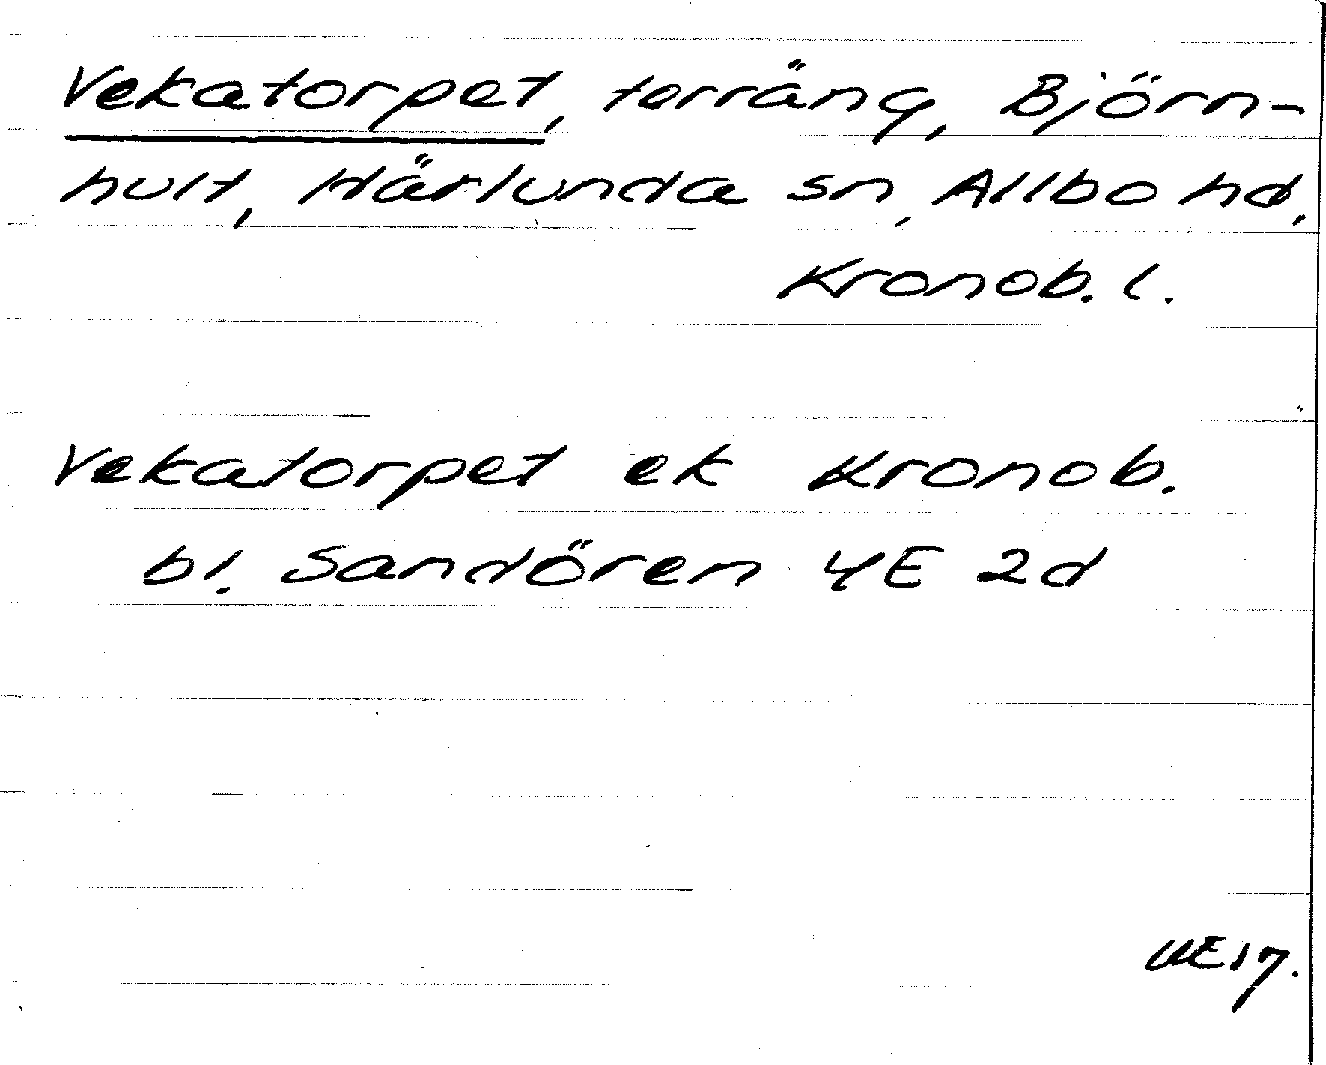 Vekatorpet, terräng, Björn-
hult, Härlunda sn, Allbo hd,
Kronob. l.
Vekatorpet ek Kronob.
bl. Sandören 4E 2d
UE17.